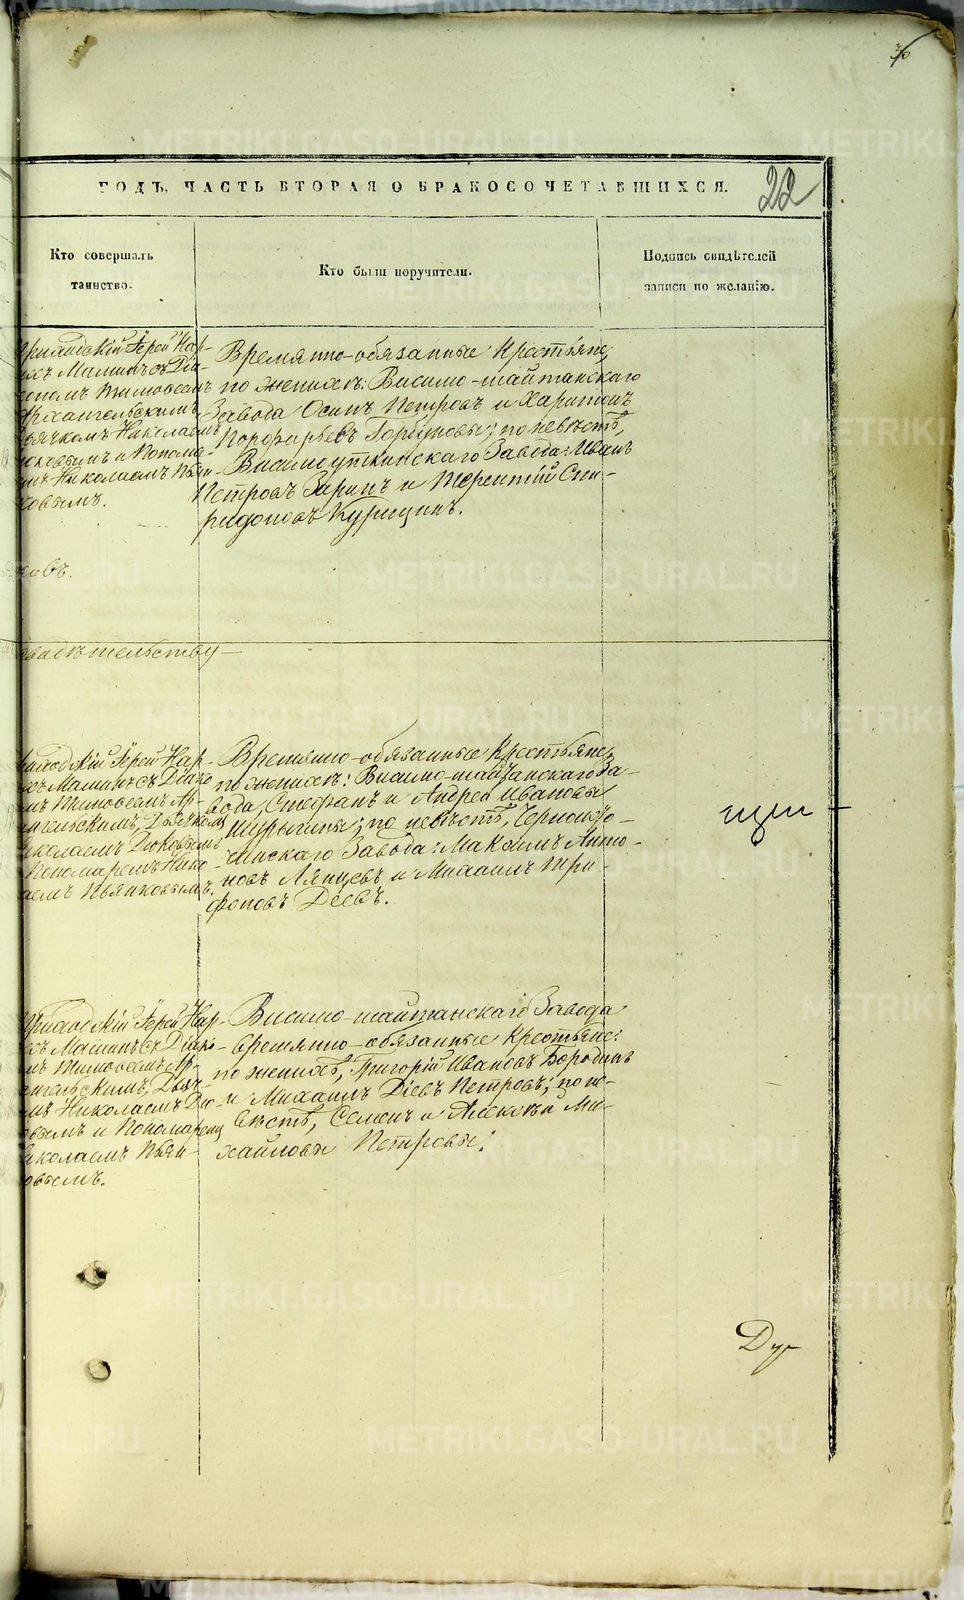 22
ГОДЪ, ЧАСТЬ ВТОРАЯ О БРАКОСОЧЕТАВШИХСЯ.
Кто совершалъ
таинство.
Кто были поручители.
Подпись свидѣтелей
записи по желанію.
Приходскій Іерей Кар-
пъ Маминъ съ Діа-
кономъ Тимовеемъ
Архангельскимъ
Дьячкомъ Николаемъ
Дюковымъ и Понома-
ремъ Николаемъ Пьян-
ковымъ.
Временно-обязанные Крестьяне
по женихѣ: Висимо-шайтанскаго
Завода Осипъ Петровъ и Харитонъ
Порфирьевъ Горбуновы; по невѣстѣ,
Висимоуткинскаго Завода: Иванъ
Петровъ Заринъ и Терентій Спи-
ридоновъ Курицинъ.
ковъ.
свидѣтельству
Приходскій Іерей Кар-
пъ Маминъ съ Діако
мъ Тимовеемъ Ар-
ангельскимъ, Дьячкомъ
иколаемъ Дюковымъ
Пономаремъ Нико
аемъ Пьянковымъ.
Временно-обязанные Крестьяне,
по женихѣ: Висимо-шайтанскаго За-
вода, Стефанъ и Андрей Ивановы
по невѣстѣ, Черноисто-
чинскаго Завода: Максимъ Анто-
новъ Ляпцевъ и Михаилъ Три-
фоновъ Деевъ.
Приходскій Іерей Кар-
пъ Маминъ съ Діако
мъ Тимовеемъ Ар-
ангельскимъ, Дьяч-
мъ Николаемъ Дю-
овымъ и Пономаремъ
иколаемъ Пьян-
овымъ.
Висимо-шайтанскаго Завода
временно-обязанные Крестьяне:
по женихѣ, Григорій Ивановъ Бородинъ
и Михаилъ Діевъ Петровъ; по не-
вѣстѣ, Семенъ и Алексѣй Ми-
хайловы Петровы.
щен
Ду
METRIKI.GASO-URAL.RU